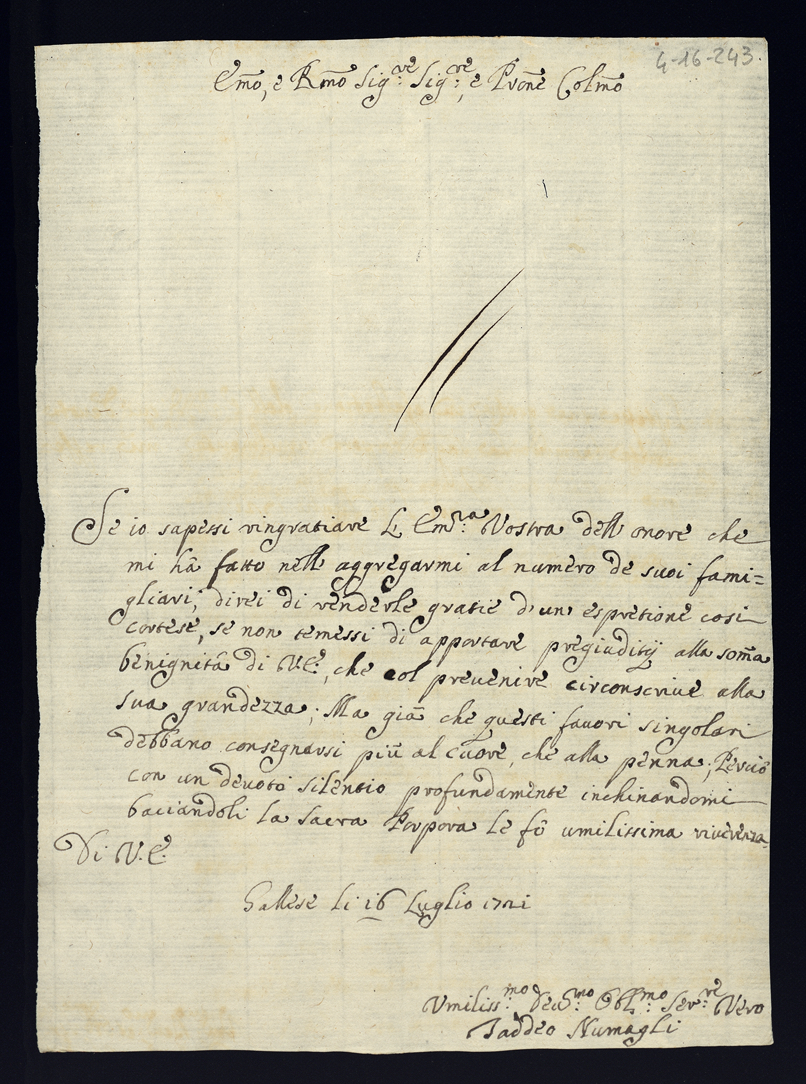 4-16-243.
Emo, e Rmo Sig:re Sig:re, e Prone Colmo
Se io sapessi ringratiare L' Em:za Vostra dell' onore che
mi hà fatto nell' aggregarmi al numero de suoi fami=
gliari, direi di renderle gratie d'un' espretione così
cortese, se non temessi di apportare pregiuditij alla soma
benignità di V.E., che col prevenire circonscrive alla
sua grandezza; Ma già che questi favori singolari
debbano consegnarsi più al cuore, che alla penna; Perciò
con un devoto silentio profundamente inchinandomi
baciandoli la sacra Porpora le fò umilissima riverenza
Di V.E.
Gallese li 16 Luglio 1721
Umiliss:mo Dev:mo Obl:mo Ser:re Vero
Taddeo Numagli